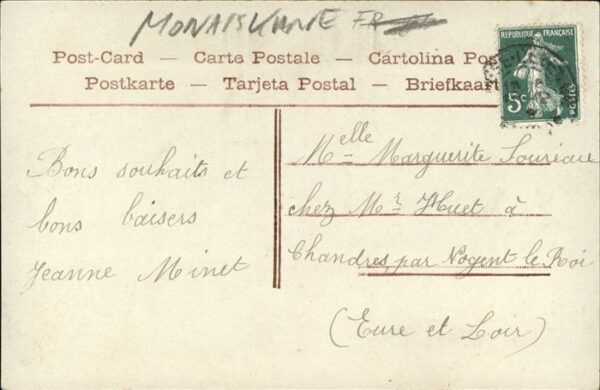 FR
Post-Card – Carte Postale – Cartolina Pos
Postkarte – Tarjeta Postal – Briefkaart
REPUBLIQUE FRANÇAISE
5c
POSTES
Bons souhaits et
bons baisers
Jeanne Minet
Melle Marguerite
chez Mr Huet à
Chandres, par Nogent le Roi
(Eure et Loir)